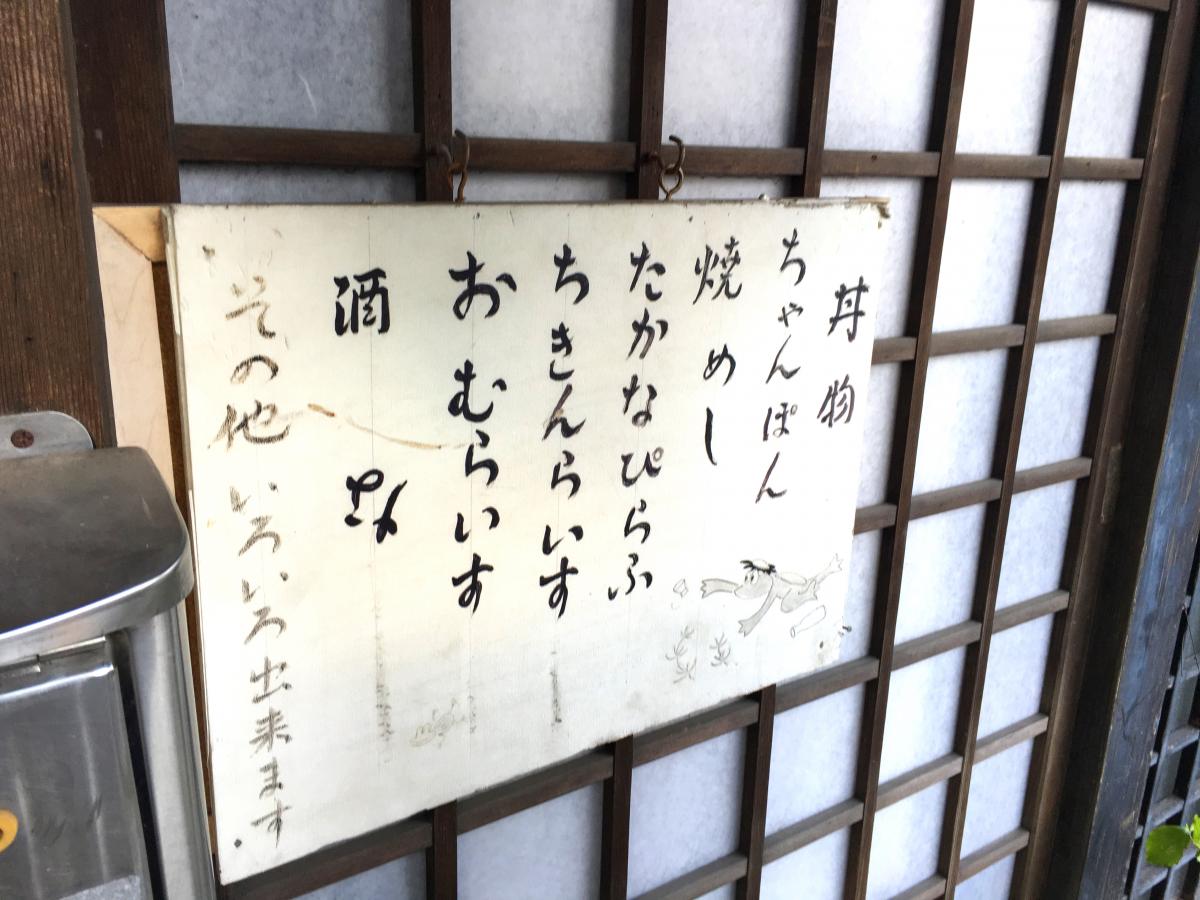 丼物
ちゃんぽん
焼めし
たかなぴらふ
ちきんらいす
おむらいす
酒
その他いろいろ出来ます